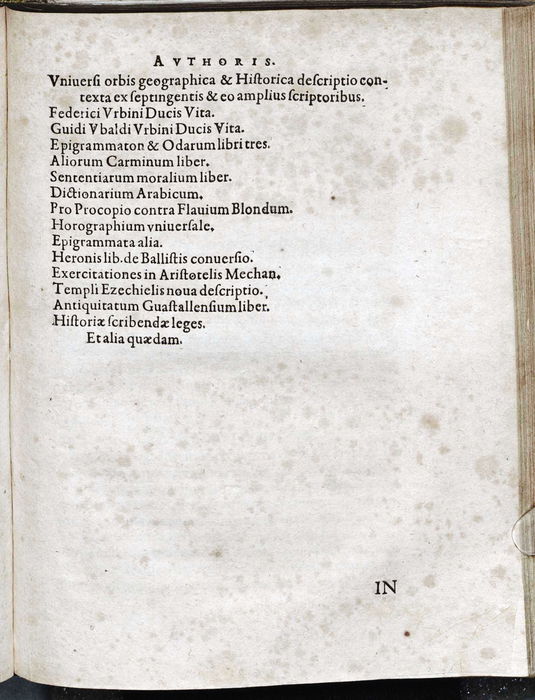 AVTHORIS.
Vniuerſi orbis geographica & Hiſtorica deſcriptio con-
texta ex ſeptingentis & eo amplius ſcriptoribus.
Federici Vrbini Ducis Vita.
Guidi Vbaldi Vrbini Ducis Vita.
Epigrammaton & Odarum libri tres.
Aliorum Carminum liber.
Sententiarum moralium liber.
Dictionarium Arabicum.
Pro Procopio contra Flauium Blondum.
Horographium vniuerſale.
Epigrammata alia.
Heronis lib. de Balliſtis conuerſio.
Exercitationes in Ariſtotelis Mechan.
Templi Ezechielis noua deſcriptio.
Antiquitatum Guaſtallenſium liber.
Hiſtoriæ ſcribendæ leges.
Et alia quædam.
IN